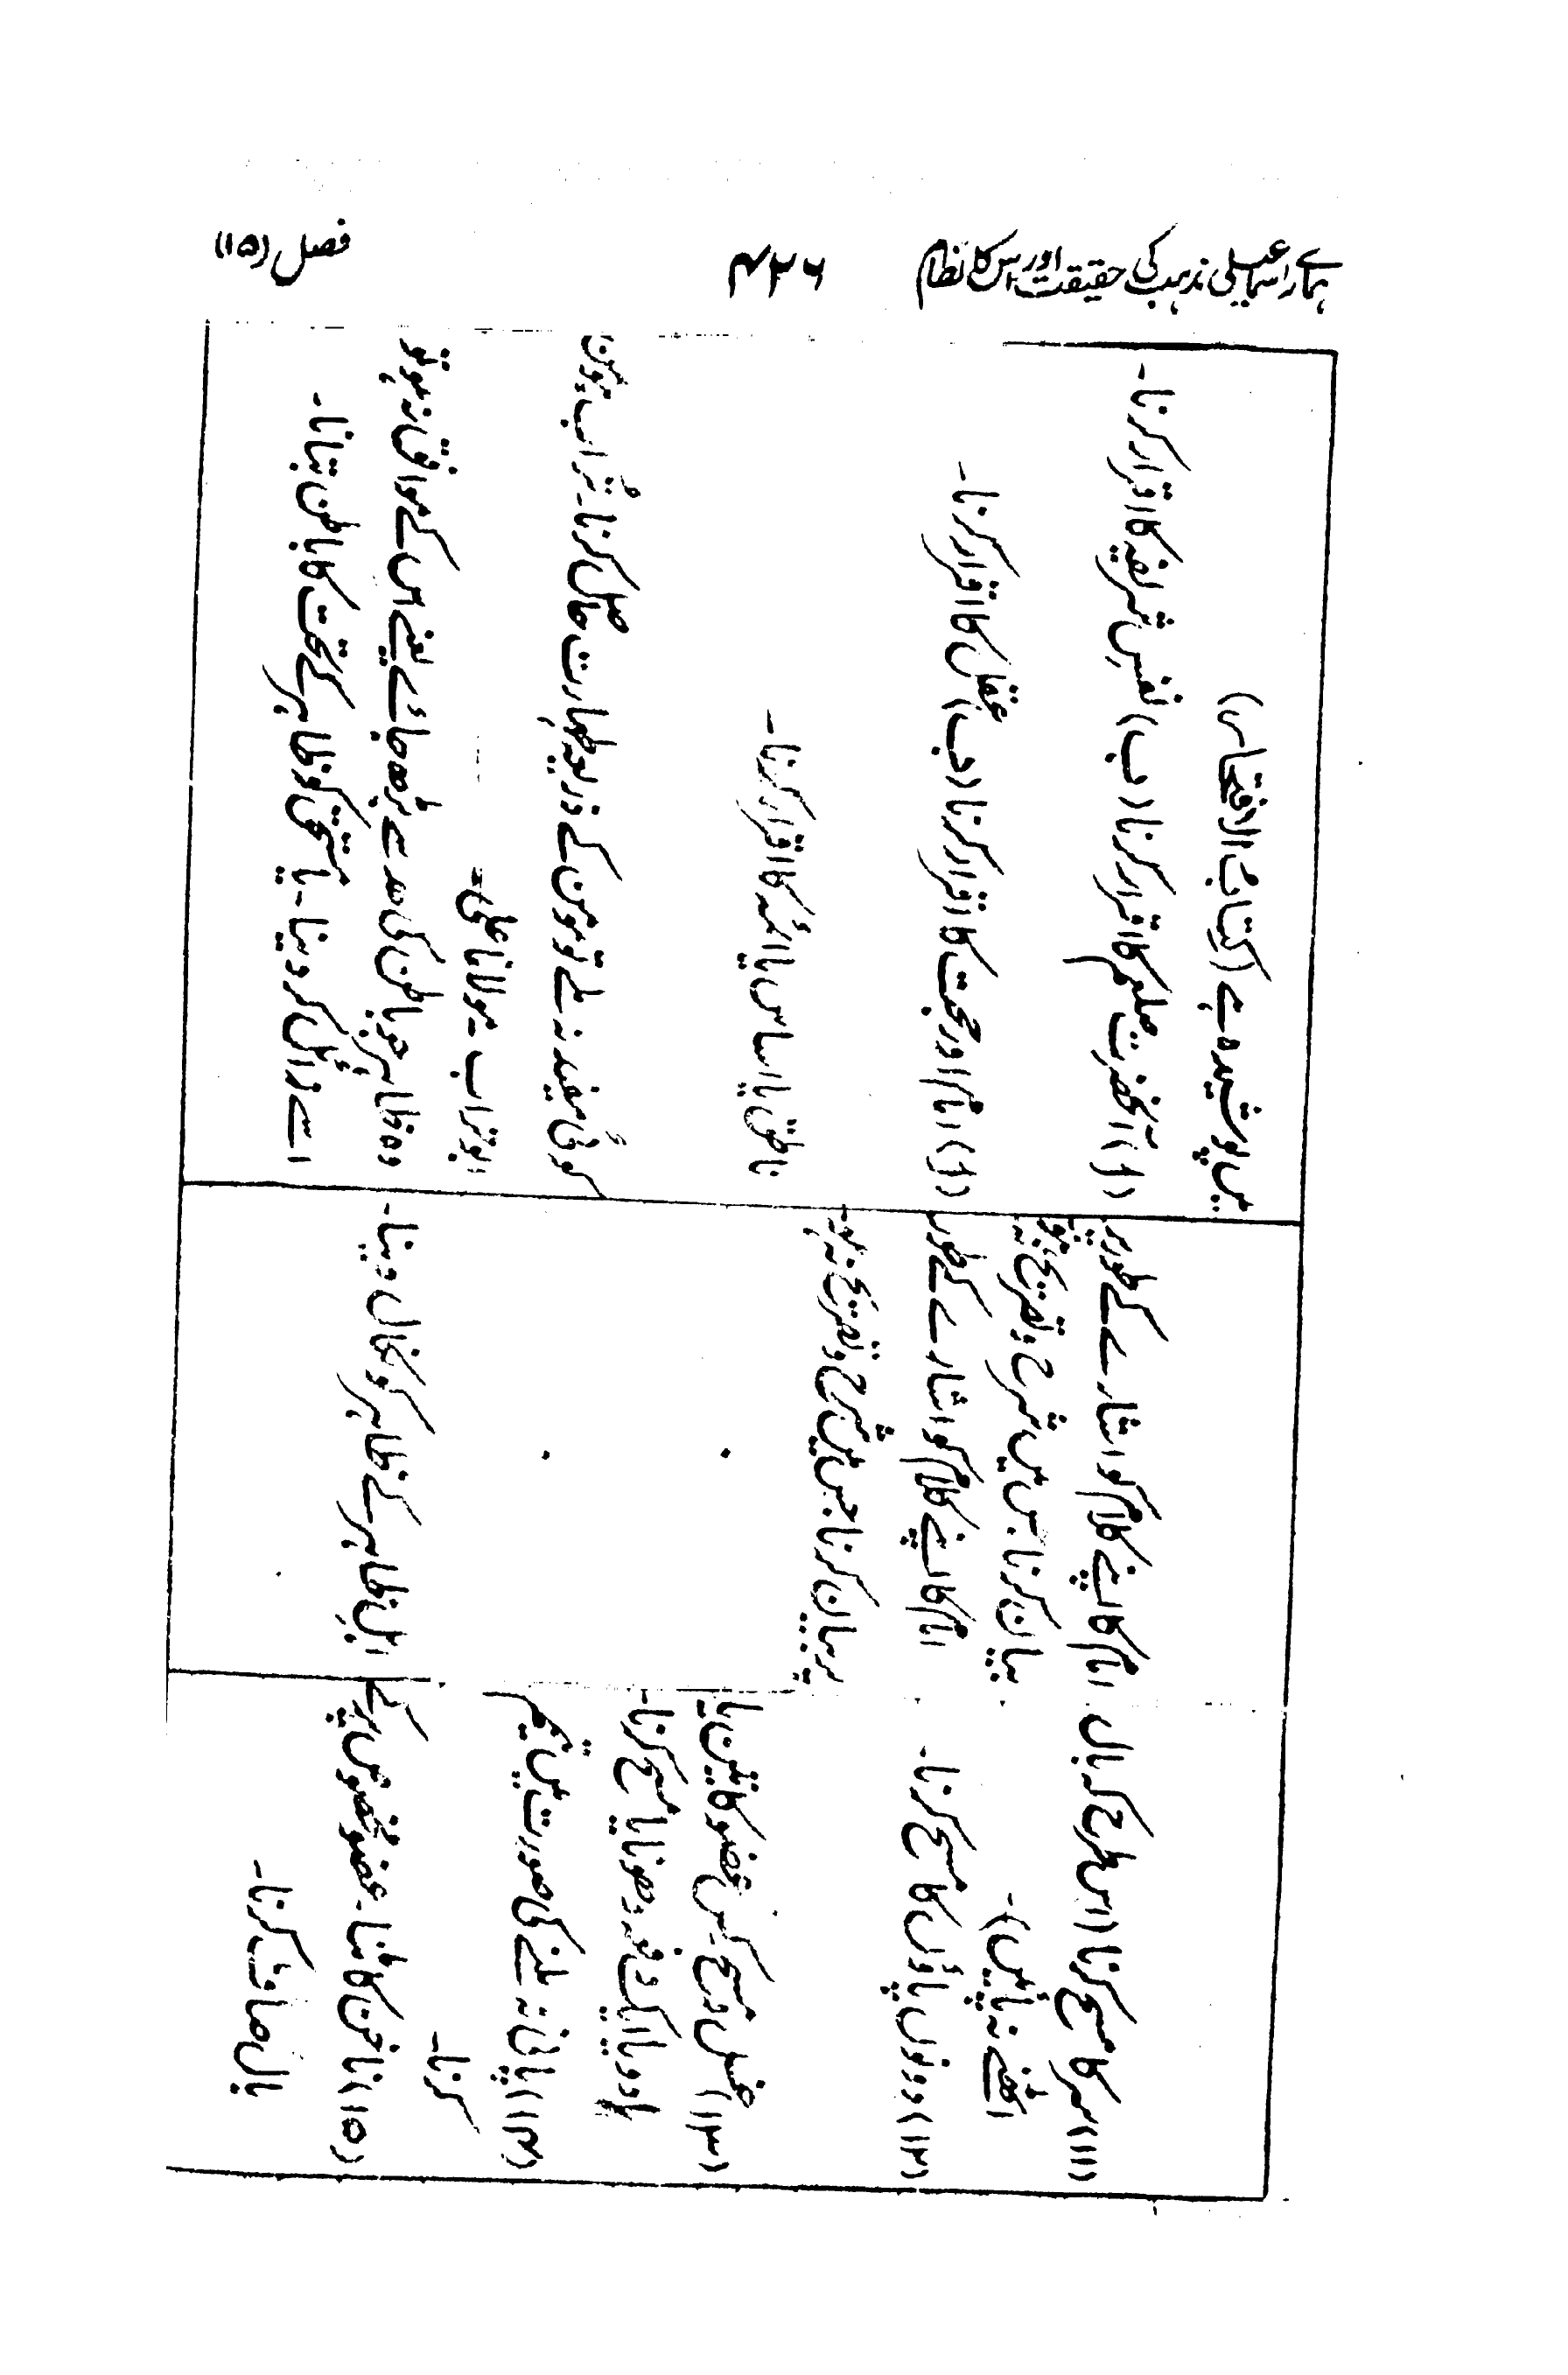 ہمارے اسماعیلی مذہب کی حقیقت اور اس کا نظام
۴۳۶
فصل (۱۵)
میں پوشیدہ ہے (کتاب الافتخار)
(۱۱) سر کا مسح کرنا (اس طرح کہ بال
اکھٹنے نہ پائیں)۔
امام کا اپنے کلام کو اشارے کے طور پر
بیان کرنا جس میں شرح و تفریح نہ ہو
(۱) آنحضرت صلعم کا اقرار کرنا (ب) نفس شریفہ کا اقرار کرنا۔
(۱۲) دونوں پاؤں کا مسح کرنا۔
امام کا اپنے کلام کو اشارے کے طور
پر بیان کرنا جس میں شرح و تفریح نہ ہو۔
(۱) امام اور حجت کا اقرار کرنا (ب) عقل کا اقرار کرنا۔
(۱۳) غسل و مسح کس عضو کا تین یا
دو یا ایک دفعہ دھونا یا مسح کرنا۔
ناطق یا اساس یا ائمہ کا اقرار کرنا۔
(۱۴) پانی نہ ملنے کی صورت میں تیمم
کرنا۔
کوئی مفید نہ ملے تو مومن کے ذریعہ طہارت حاصل کرنا۔ تُراب مومن
ابوتراب۔ مولانا علی۔
(۱۵) ناخن کاٹنا۔ عضو مخصوص پر کے
بال صاف کرنا۔
اہل ظاہر کے ظاہر کو نکال دینا۔
وہ ظاہر جو باطن کی حد سے بڑھ جائے یعنے اس کے موافق نہ ہو تو
اسے زائل کر دینا۔ یا مستحق کو ظاہر کے تحت کا باطن بتانا۔